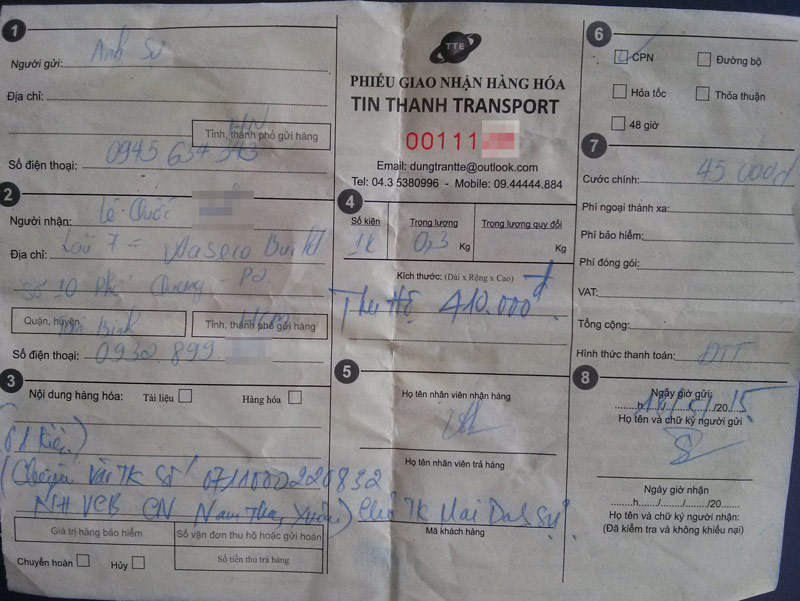 1
Người gửi: Anh Sự
Địa chỉ:
HN
Tỉnh, thành phố gửi hàng
Số điện thoại: 0945 634 343
2
Người nhận: Lê Quốc
Địa chỉ: Lầu 7 = Waseco Build
Số 10 Phổ Quang P2
Quận, huyện Tân Bình
Tỉnh, thành phố gửi hàng HCM
Số điện thoại: 0932 899
3
Nội dung hàng hóa: Tài liệu Hàng hóa
(01 kiện)
(Chuyển vào TK số 0711000220832
NH VCB CN Thanh Xuân) Chủ TK Mai Danh Sự
Giá trị hàng bảo hiểm
Số vận đơn thu hộ hoặc gửi hoàn
Chuyển hoàn Hủy
Số tiền thu trả hàng
TTE
PHIẾU GIAO NHẬN HÀNG HÓA
TIN THANH TRANSPORT
00111
Email: dungtrantte@outlook.com
Tel: 04.3 5380996 - Mobile: 09.44444.884
4
Số kiện Trọng lượng Trọng lượng quy đổi
1k 0,3 Kg Kg
Kích thước: (Dài x Rộng x Cao)
Thu Hộ 410.000đ
5
Họ tên nhân viên nhận hàng
Họ tên nhân viên trả hàng
Mã khách hàng
6
CPN Đường bộ
Hỏa tốc Thỏa thuận
48 giờ
7
Cước chính: 45 000đ
Phí ngoại thành xa:
Phí bảo hiểm:
Phí đóng gói:
VAT:
Tổng cộng:
Hình thức thanh toán: ĐTT
8
Ngày giờ gửi:
........h......./......../20 15
Họ tên và chữ ký người gửi
Ngày giờ nhận
........h......./......../20....
Họ tên và chữ ký người nhận:
(Đã kiểm tra và không khiếu nại)